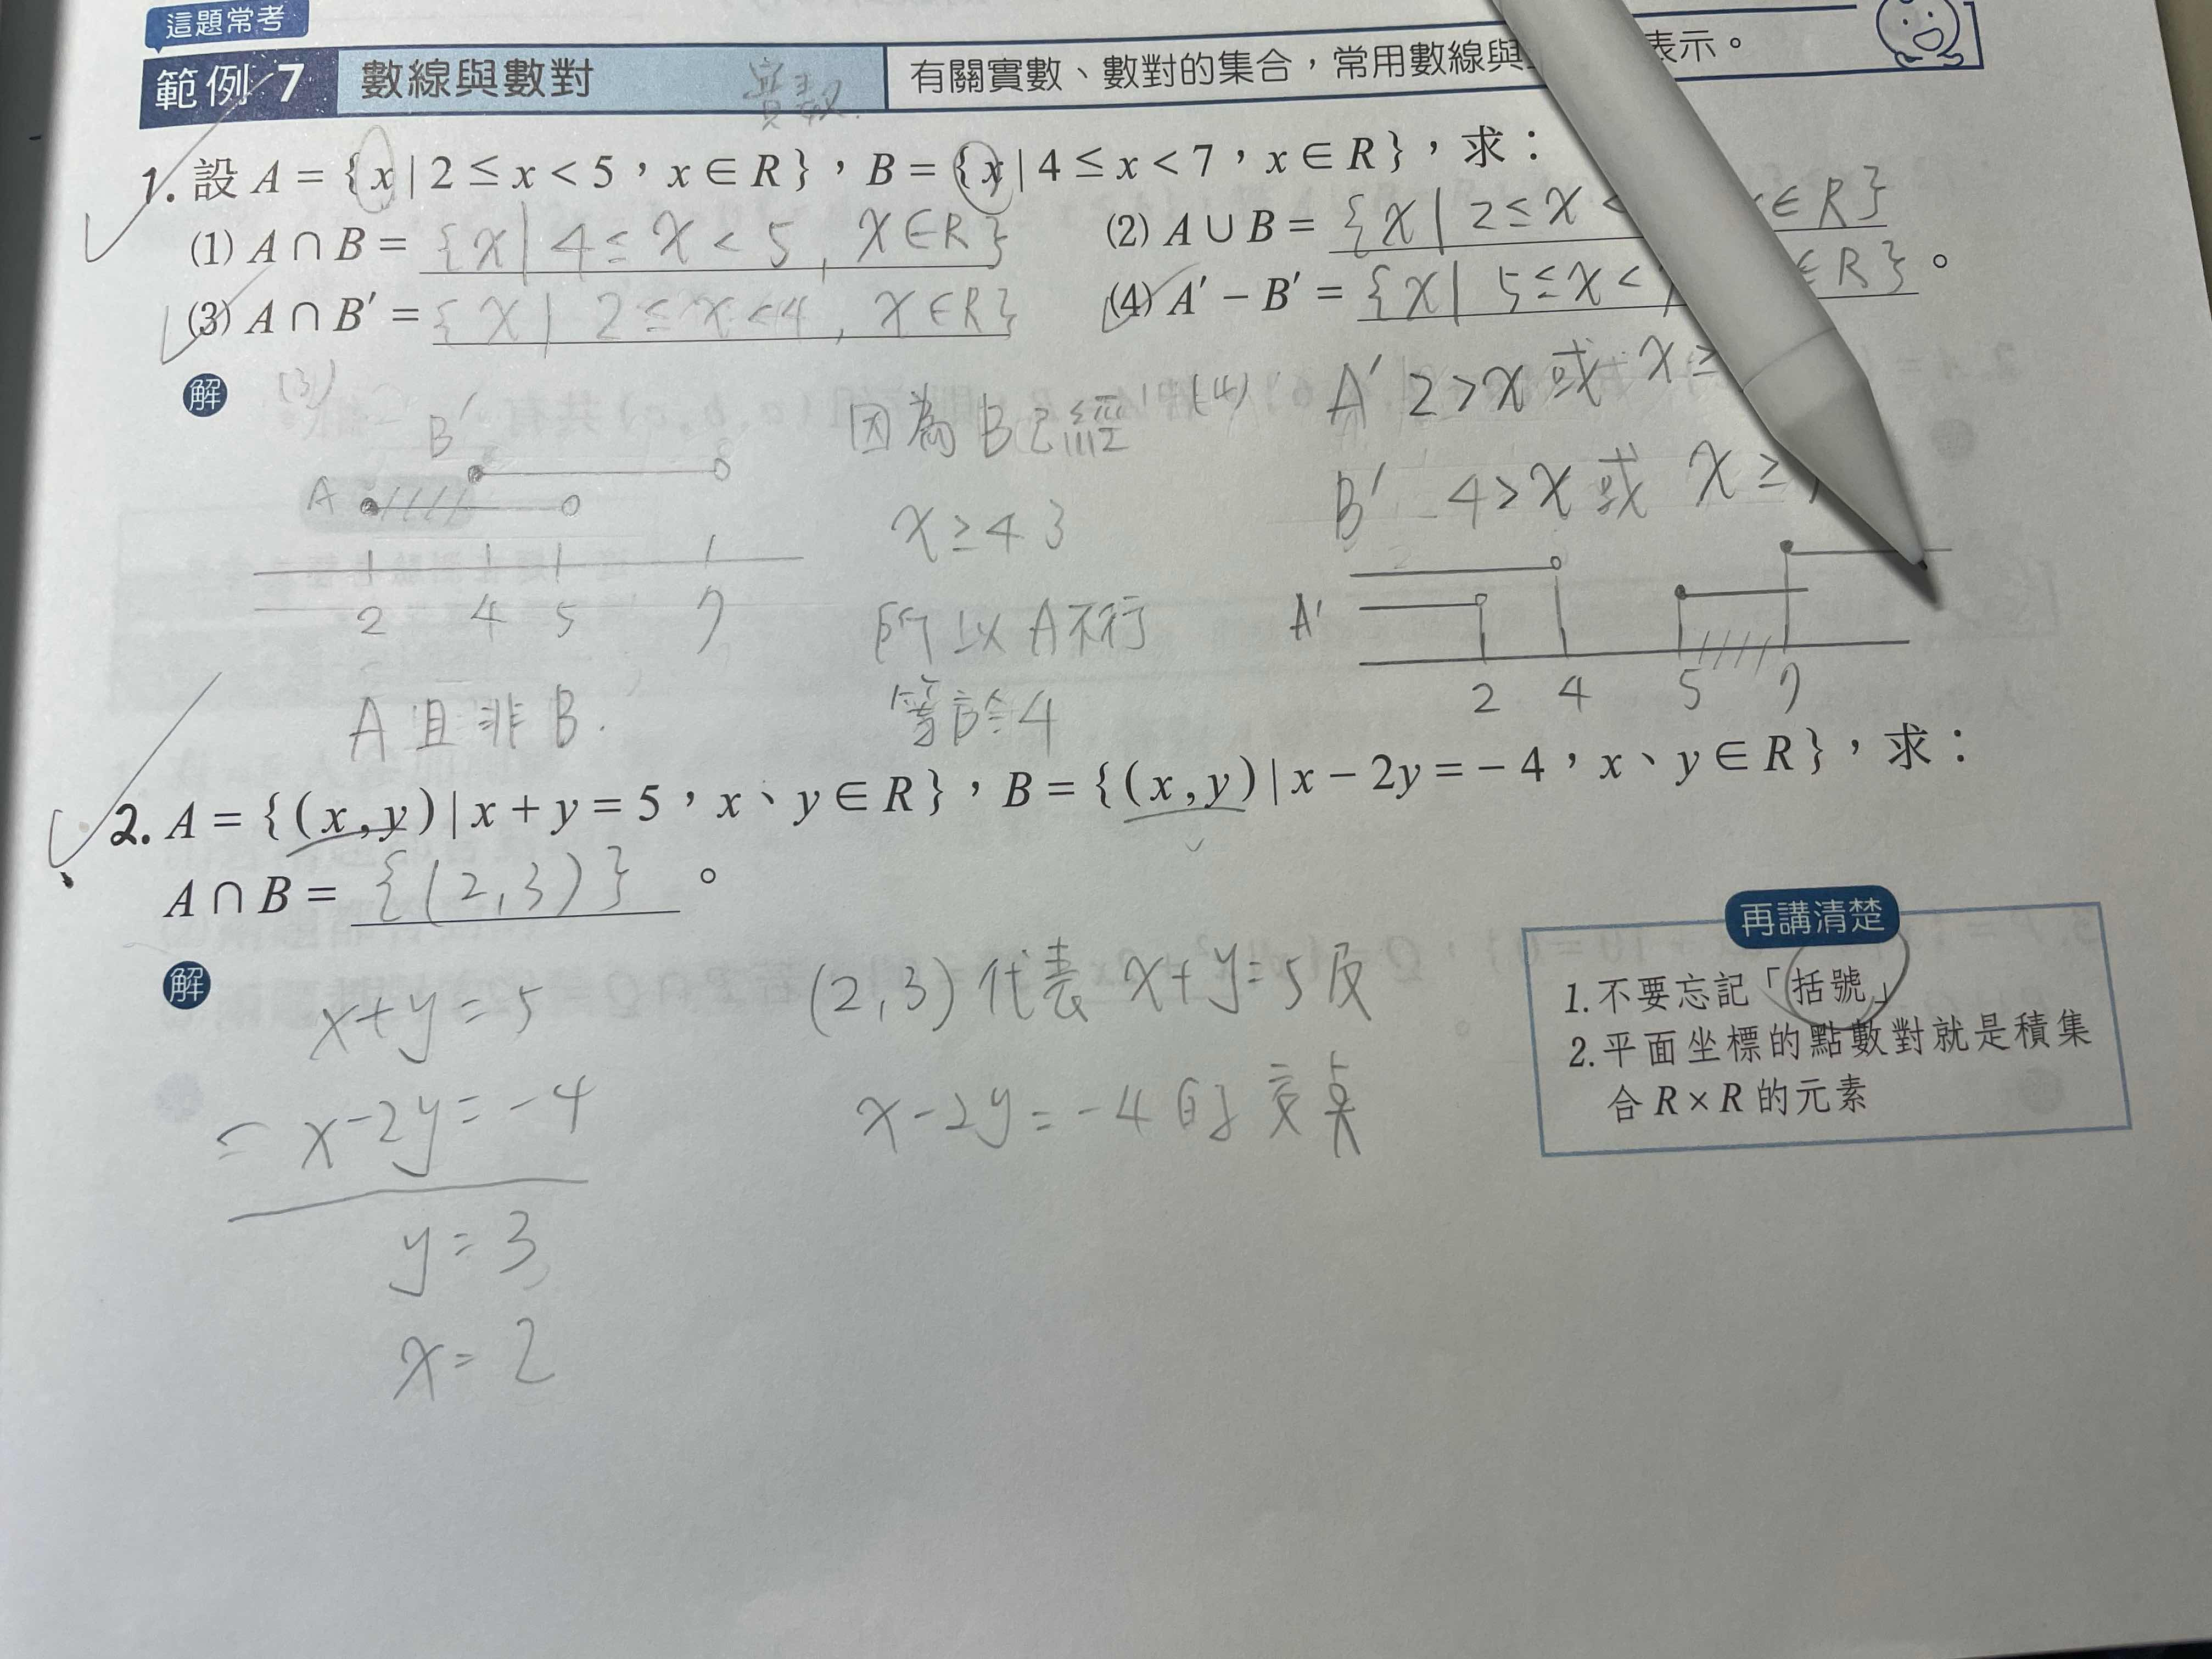 這題常考
範例 7 數線與數對 實數 有關實數、數對的集合,常用數線與 表示。
1. 設 A = { x | 2 ≤ x < 5 , x ∈ R } , B = { x | 4 ≤ x < 7 , x ∈ R } , 求:
(1) A ∩ B = { x | 4 ≤ x < 5 , x ∈ R } (2) A ∪ B = { x | 2 ≤ x < x ∈ R }
(3) A ∩ B′ = { x | 2 ≤ x < 4 , x ∈ R } (4) A′ − B′ = { x | 5 ≤ x < ∈ R } 。
解 (3) 因為 B 已經 (4) A′ 2 > x 或 x ≥
B′
A
x ≥ 4 3
B′ 4 > x 或 x ≥
2 4 5 7
所以 A 不行
A′
2 4 5 7
A 且非 B.
等於 4
2. A = { (x , y) | x + y = 5 , x 、 y ∈ R } , B = { (x , y) | x − 2y = − 4 , x 、 y ∈ R } , 求:
A ∩ B = { (2 , 3) } 。
解 x + y = 5
− x − 2y = − 4
y = 3
x = 2
(2 , 3) 代表 x + y = 5 及
x − 2y = − 4 的交點
再講清楚
1. 不要忘記「括號」
2. 平面坐標的點數對就是積集
合 R × R 的元素